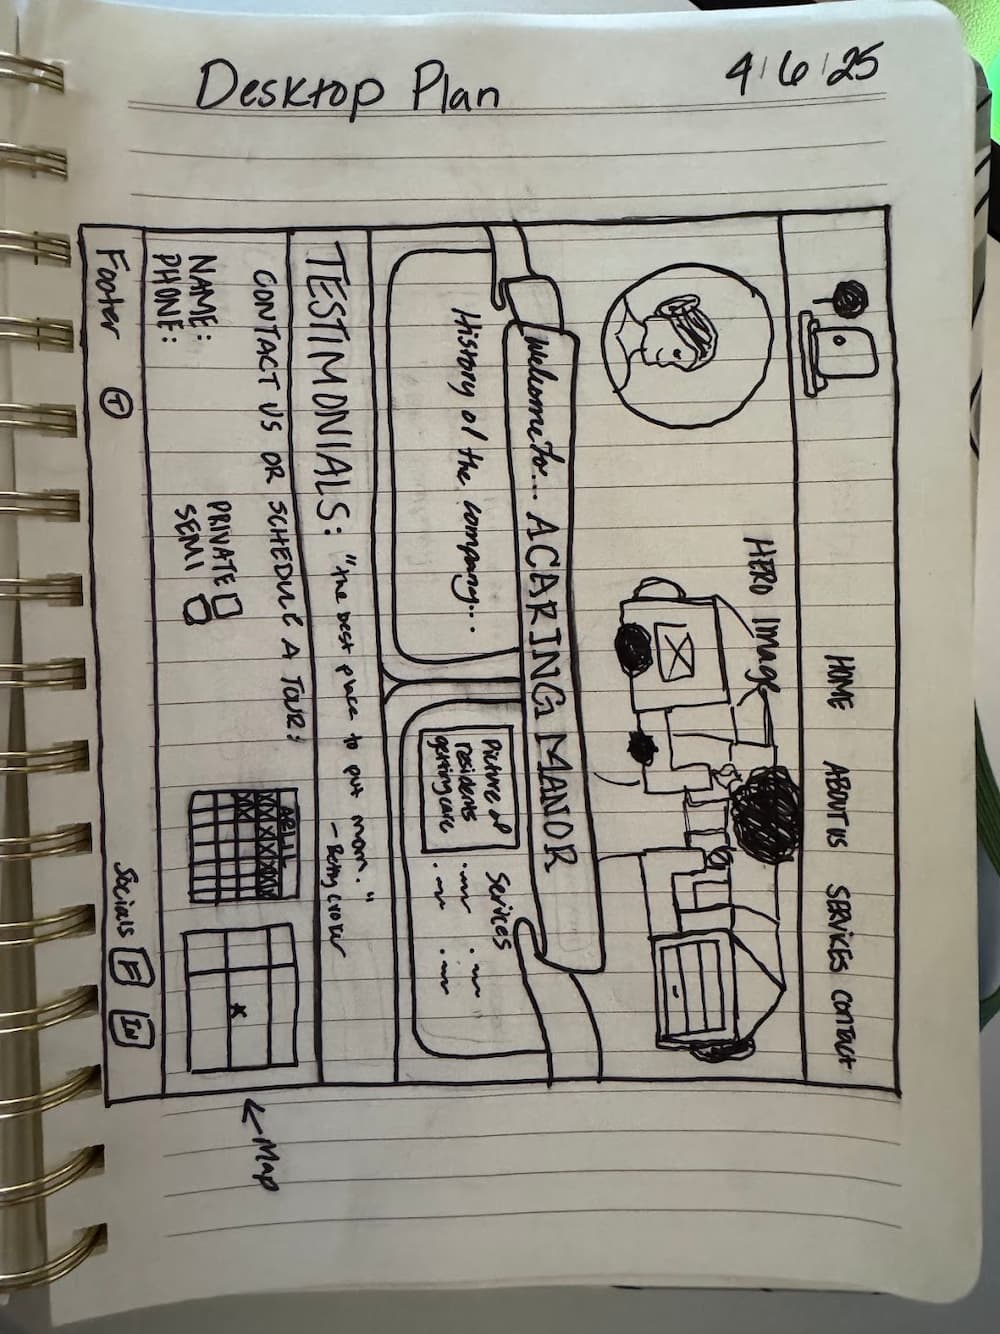 Desktop Plan
4/6/25
HOME ABOUT US SERVICES CONTACT
HERO Image
Welcome To... A CARING MANOR
History of the company...
Services
Picture of
residents
getting care
TESTIMONIALS: "the best place to put mom."
- Betty Crocker
CONTACT US OR SCHEDULE A TOUR:
NAME:
PHONE:
PRIVATE
SEMI
APRIL
← Map
Footer
T
Socials F IN